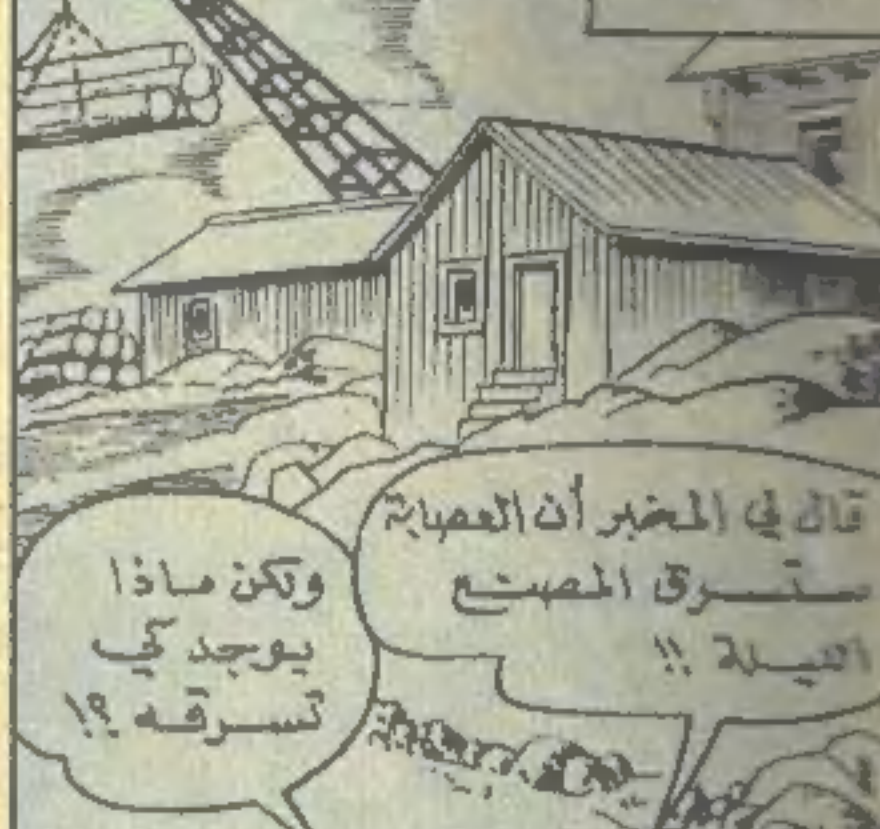 قال لي المخبر أن العصابة
ستسرق المصنع
الليلة !!
ولكن ماذا
يوجد كي
تسرقه ؟!